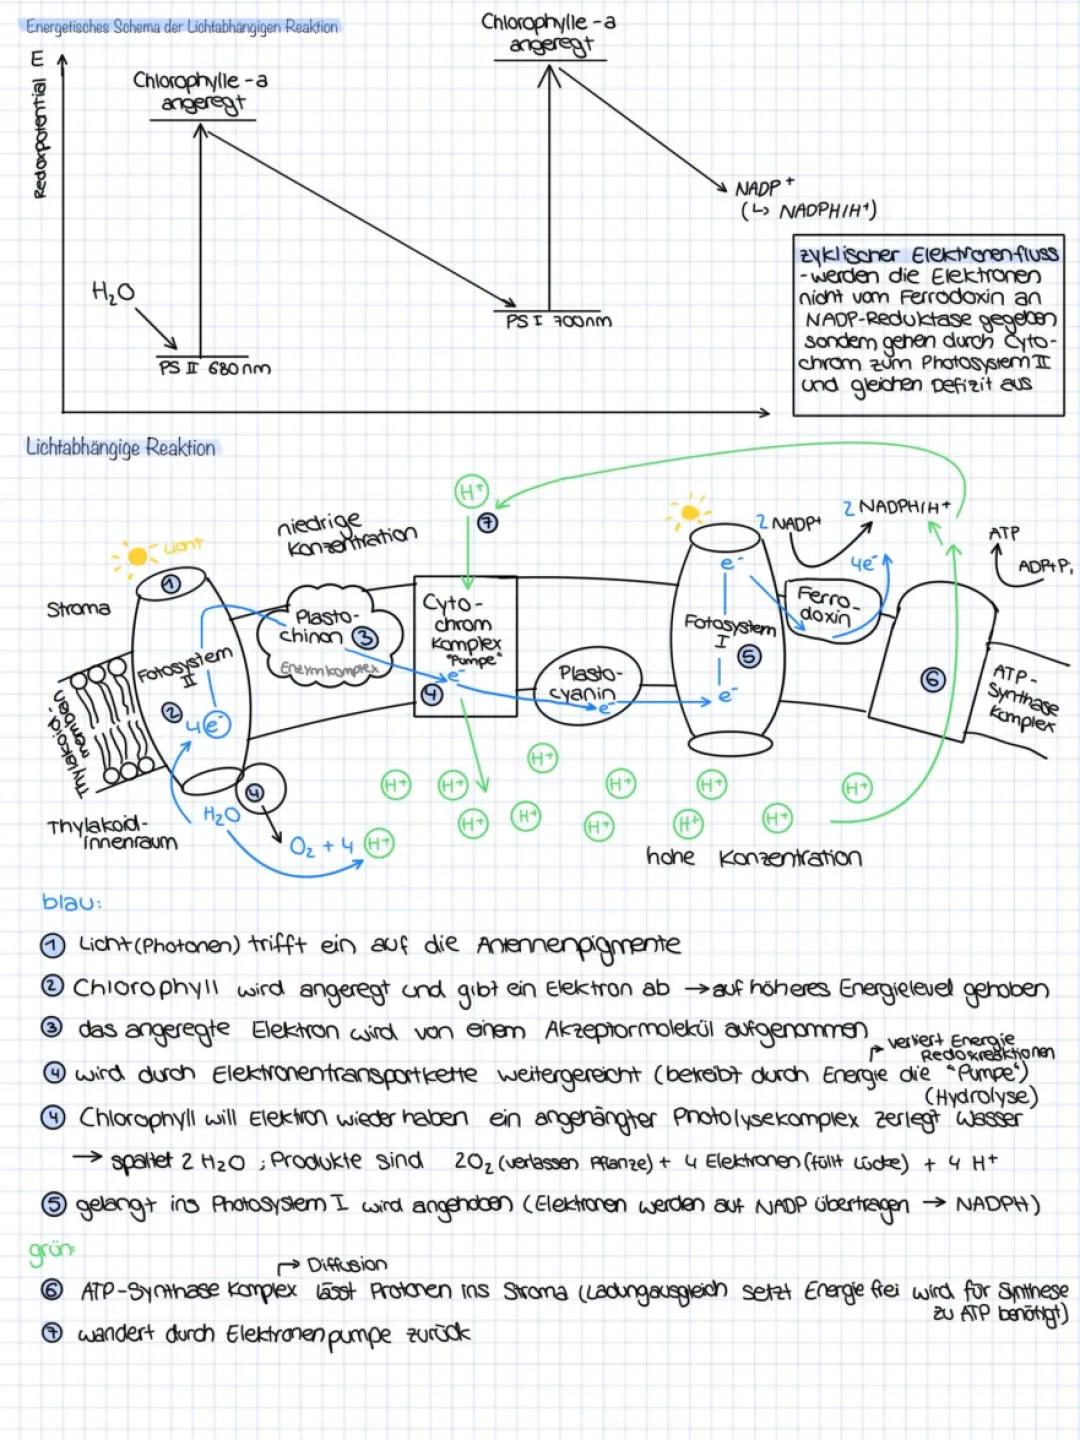 Energetisches Schema der Lichtabhängigen Reaktion
Chlorophylle -a
angeregt
E
Redoxpotential
Chlorophylle -a
angeregt
NADP+
(↳ NADPH/H+)
H₂O
PS I 700nm
PS II 680nm
zyklischer Elektronenfluss
- werden die Elektronen
nicht vom Ferrodoxin an
NADP-Reduktase gegeben
sondern gehen durch Cyto-
chrom zum Photosystem II
und gleichen Defizit aus
Lichtabhängige Reaktion
H+
7
niedrige
Konzentration
Licht
2 NADP+
2 NADPH/H+
ATP
ADP+Pᵢ
4e⁻
Stroma
1
Plasto-
chinon 3
Enzymkomplex
Cyto-
chrom
Komplex
"Pumpe"
e⁻
4
Fotosystem
II
2
4 e⁻
Plasto-
cyanin
e⁻
e⁻
Fotosystem
I
5
e⁻
Ferro-
doxin
6
ATP-
Synthase
Komplex
Thylakoid
membran
H+ H+ H+ H+ H+ H+
H+ H+ H+ H+ H+
4
H₂O
O₂ + 4 H+
Thylakoid-
innenraum
hohe Konzentration
blau:
1 Licht (Photonen) trifft ein auf die Antennenpigmente
2 Chlorophyll wird angeregt und gibt ein Elektron ab → auf höheres Energielevel gehoben
3 das angeregte Elektron wird von einem Akzeptormolekül aufgenommen
verliert Energie
Redoxreaktionen
4 wird durch Elektronentransportkette weitergereicht (betreibt durch Energie die "Pumpe")
(Hydrolyse)
4 Chlorophyll will Elektron wieder haben ein angehängter Photolysekomplex zerlegt Wasser
→ spaltet 2 H₂O ; Produkte sind 2O₂ (verlassen Pflanze) + 4 Elektronen (füllt Lücke) + 4 H+
5 gelangt ins Photosystem I wird angehoben (Elektronen werden auf NADP übertragen → NADPH)
grün:
→ Diffusion
6 ATP-Synthase Komplex lässt Protonen ins Stroma (Ladungausgleich setzt Energie frei wird für Synthese
zu ATP benötigt)
7 wandert durch Elektronenpumpe zurück